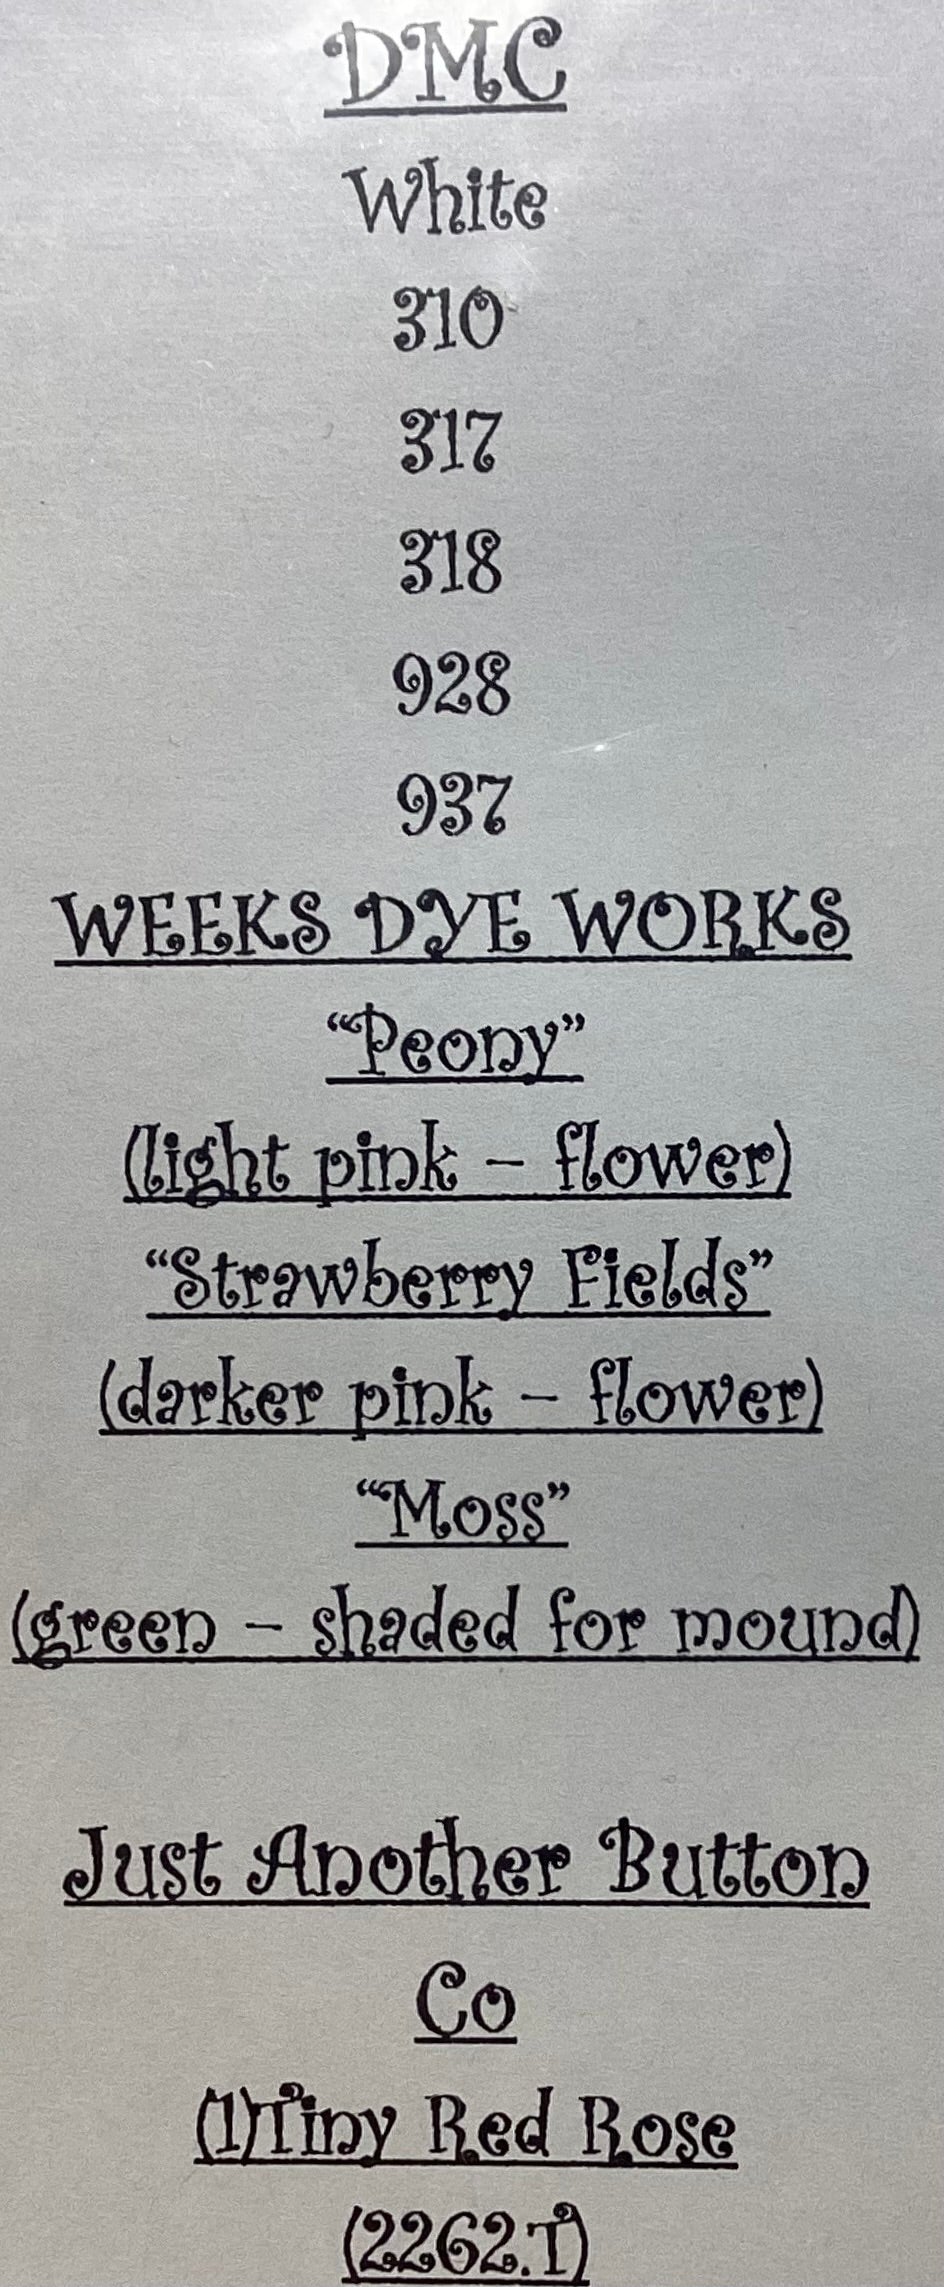 DMC
White
310
317
318
928
937
WEEKS DYE WORKS
“Peony”
(light pink – flower)
“Strawberry Fields”
(darker pink – flower)
“Moss”
(green – shaded for mound)
Just Another Button
Co
(1)Tiny Red Rose
(2262.T)